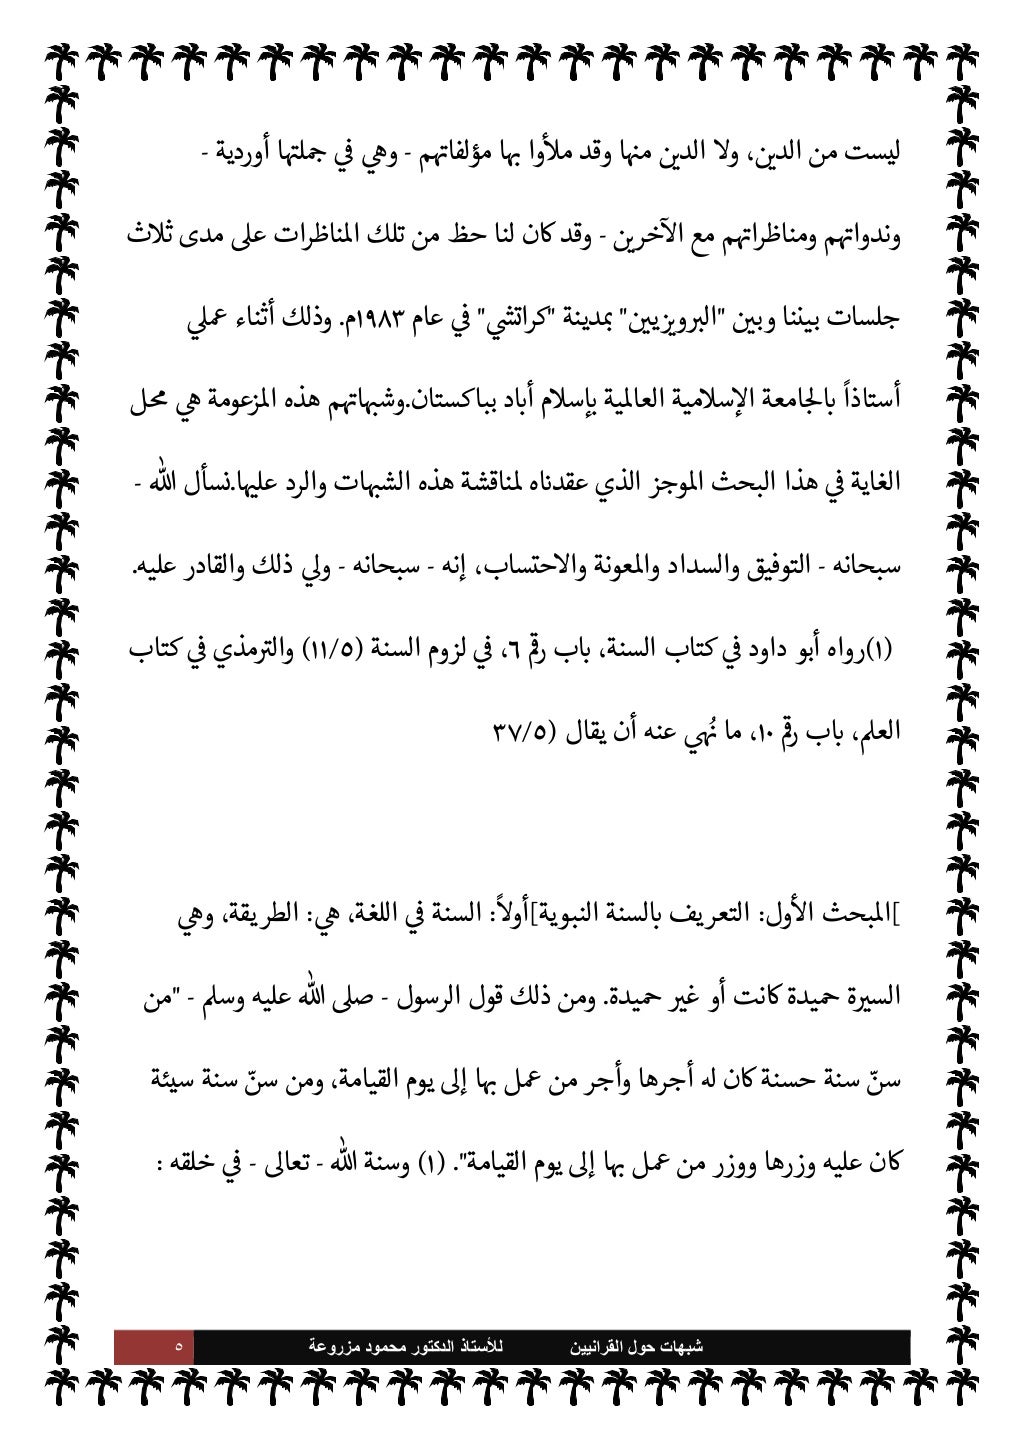 ليست من الدين، ولا الدين منها وقد ملأوا بها مؤلفاتهم - وهي في جملتها أوردية -
وندواتهم ومناظراتهم مع الآخرين - وقد كان لنا حظ من تلك المناظرات على مدى ثلاث
جلسات بيننا وبين "البرويزيين" بمدينة "كراتشي" في عام ١٩٨٣م. وذلك أثناء عملي
أستاذاً بالجامعة الإسلامية العالمية بإسلام أباد بباكستان.وشبهاتهم هذه المزعومة هي محل
الغاية في هذا البحث الموجز الذي عقدناه لمناقشة هذه الشبهات والرد عليها.نسأل الله -
سبحانه - التوفيق والسداد والمعونة والاحتساب، إنه - سبحانه - ولي ذلك والقادر عليه.
(١)رواه أبو داود في كتاب السنة، باب رقم ٦، في لزوم السنة (١١/٥) والترمذي في كتاب
العلم، باب رقم ١٠، ما نُهي عنه أن يقال (٣٧/٥
]المبحث الأول: التعريف بالسنة النبوية]أولاً: السنة في اللغة، هي: الطريقة، وهي
السيرة حميدة كانت أو غير حميدة. ومن ذلك قول الرسول - صلى الله عليه وسلم - "من
سنّ سنة حسنة كان له أجرها وأجر من عمل بها إلى يوم القيامة، ومن سنّ سنة سيئة
كان عليه وزرها ووزر من عمل بها إلى يوم القيامة". (١) وسنة الله - تعالى - في خلقه :
شبهات حول القرانيين للأستاذ الدكتور محمود مزروعة ٥